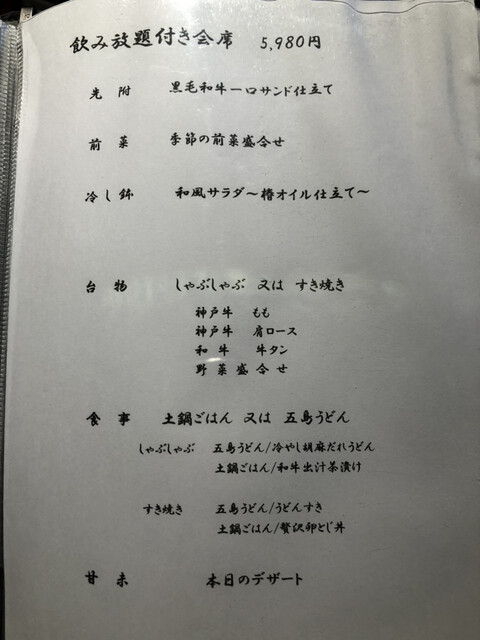 飲み放題付き会席 5,980円
先附 黒毛和牛一口サンド仕立て
前菜 季節の前菜盛合せ
冷し鉢 和風サラダ～椿オイル仕立て～
台物 しゃぶしゃぶ 又は すき焼き
神戸牛 もも
神戸牛 肩ロース
和牛 牛タン
野菜盛合せ
食事 土鍋ごはん 又は 五島うどん
しゃぶしゃぶ 五島うどん/冷やし胡麻だれうどん
土鍋ごはん/和牛出汁茶漬け
すき焼き 五島うどん/うどんすき
土鍋ごはん/贅沢卵とじ丼
甘未 本日のデザート